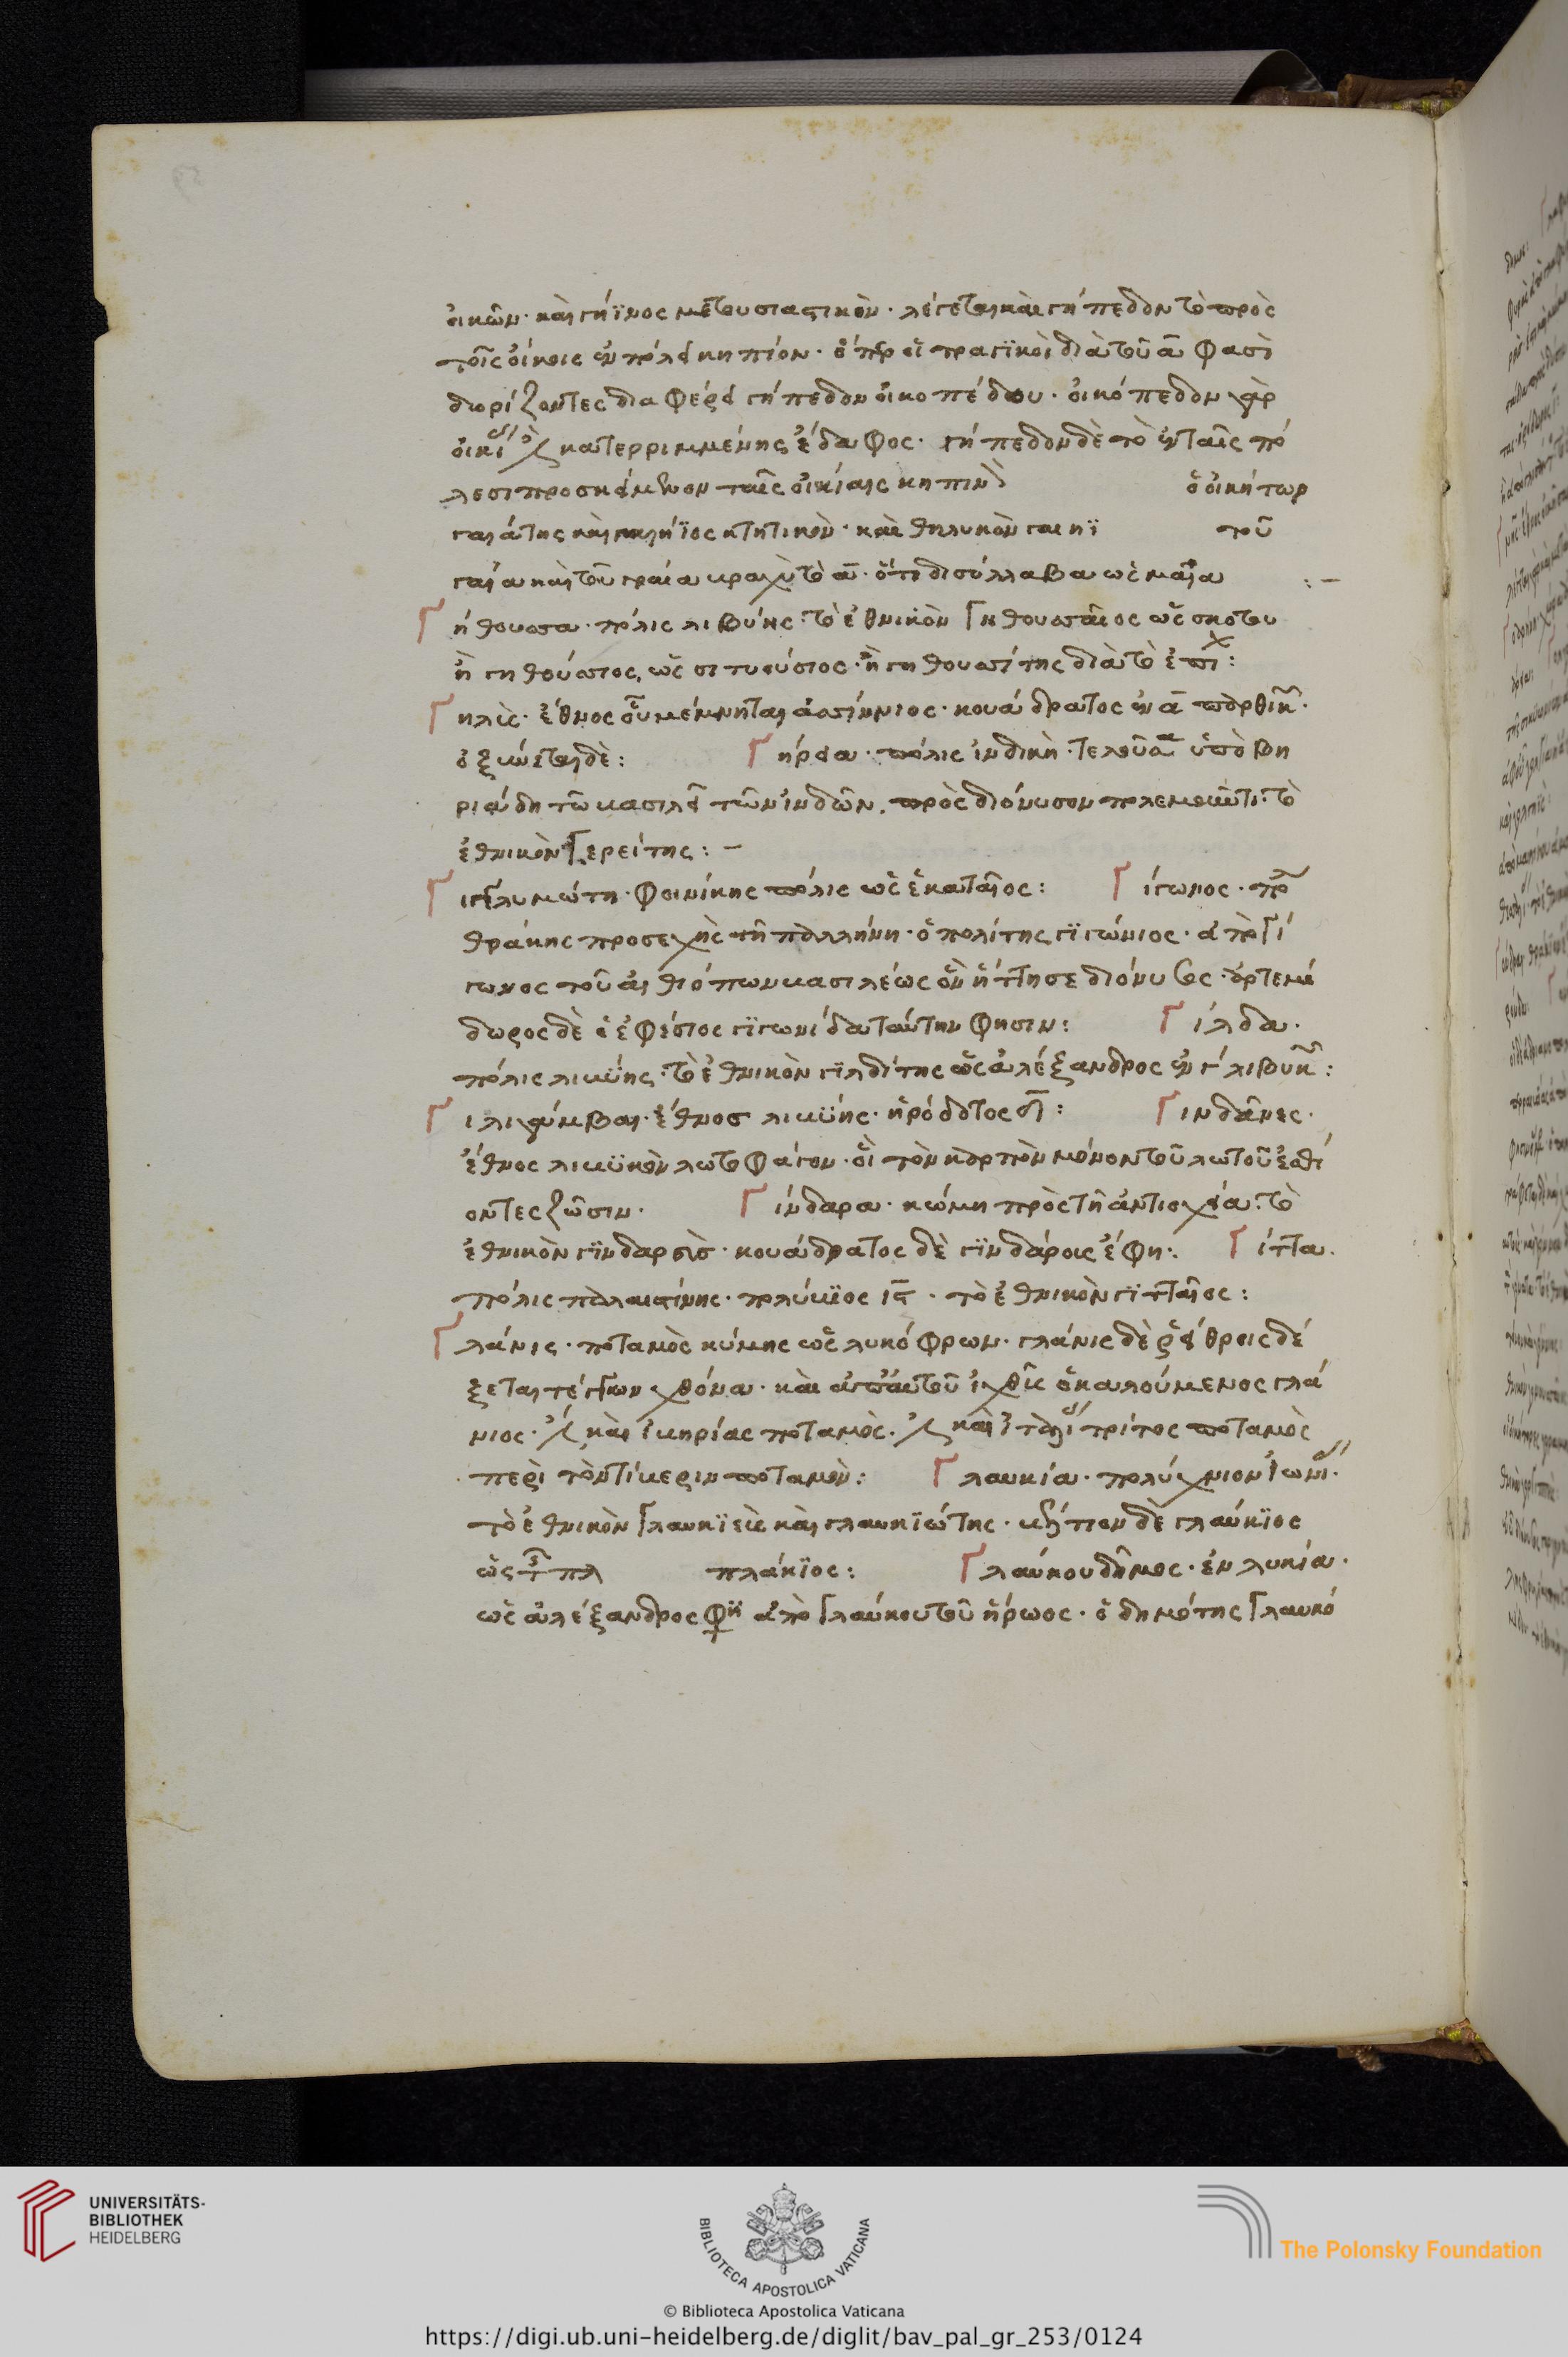 οἰκῶν· καὶ γήϊνος μετουσιαστικὸν· λέγεται καὶ γήπεδον τὸ πρὸς
τοῖς οἴκοις ἐν πόλει κηπίον· ὅπερ οἱ τραγϊκοὶ διὰ τοῦ α φασὶ
δωρίζοντες διαφέρει γήπεδον οἰκοπέδου· οἰκόπεδον γὰρ
κατερριμμένης ἔδαφος· γήπεδον δὲ τὸ ἐν ταῖς πό
λεσι προσκείμενον ταῖς οἰκίαις κηπίον ὁ οἰκήτωρ
γαιάτης καὶ γαιήϊος κτητικὸν· καὶ θηλυκὸν γαιηϊ τοῦ
γαῖα καὶ τοῦ γραία βραχὺ τὸ α· ὅτι δισύλλαβα ὡς μαῖα :–
Γήθουσα· πόλις λιβύης· τὸ ἐθνικὸν Γηθουσαῖος ὡς σκοτου
ἢ γηθούσιος, ὡς σιτυούσιος· ἢ γηθουσίτης διὰ τὸ ἐπιχ:
Γηλὶς· ἔθνος οὗ μέμνηται ἀσίννιος· κουάδρατος ἐν α παρθικ·
ὀξύνεται δὲ: Γήρεια· πόλις ἰνδικὴ· τελευτᾶ ὑπὸ βη
ριάδη τῶ βασιλεῖ τῶν ἰνδῶν, πρὸς διόνυσον πολεμοῦντι· τὸ
ἐθνικὸν Γερείτης: –
Γιγλυμώτη· φοινίκης πόλις ὡς ἑκαταῖος: Γίγωνος· πό
θράκης προσεχὴς τῆ παλλήνη· ὁ πολίτης γϊγώνιος· ἀπὸ Γί
γωνος τοῦ αἰθιόπων βασιλέως ὃν ἥττησε διόνυσος· ἀρτεμί
δωρος δὲ ὁ ἐφέσιος γϊγωνίδα ταύτην φησιν: Γίλδα·
πόλις λιβύης· τὸ ἐθνικὸν γϊλδίτης ὡς ἀλέξανδρος ἐν γ λιβυκ:
Γιλιγάμβαι· ἔθνοσ λιβύης· ἡρόδοτος δ: Γινδᾶνες·
ἔθνος λιβϋκὸν λωτοφάγον· οἳ τὸν καρπὸν μόνον τοῦ λωτοῦ ἐσθί
οντες ζῶσιν· Γίνδαρα· κώμη πρὸς τῆ ἀντιοχεία· τὸ
ἐθνικὸν γϊνδαρεὺσ· κουάδρατος δὲ γϊνδάροις ἔφη: Γίττα·
πόλις παλαιστίνης· πολύβιος ις· τὸ ἐθνικὸν γϊτταῖος:
Γλάνις· ποταμὸς κύμης ὡς λυκόφρων· γλάνις δὲ ῥείθροις δέ
ξεται τέγγων χθόνα· καὶ ἀπ' αὐτοῦ ἰχθῦς ὁ καλούμενος γλά
νιος· καὶ ἰβηρίας ποταμὸς· καὶ τρίτος ποταμὸς
περὶ τὸν τίβεριν ποταμὸν: Γλαυκία· πολύχνιον ἰωνί·
τὸ ἐθνικὸν Γλαυκϊεὺς καὶ γλαυκϊώτης· βέλτιον δὲ γλαύκϊος
ὡς τ πλ πλάκϊος: Γλαύκου δῆμος· ἐν λυκία·
ὡς ἀλέξανδρος ἀπὸ Γλαύκου τοῦ ἥρωος· ὁ δημότης Γλαυκό
UNIVERSITÄTS-
BIBLIOTHEK
HEIDELBERG
BIBLIOTECA APOSTOLICA VATICANA
The Polonsky Foundation
© Biblioteca Apostolica Vaticana
https://digi.ub.uni-heidelberg.de/diglit/bav_pal_gr_253/0124